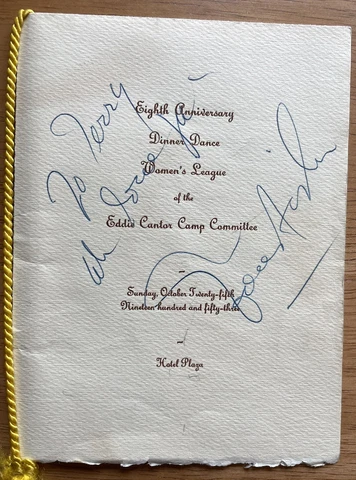 Eighth Anniversary
Dinner Dance
Women's League
of the
Eddie Cantor Camp Committee
Sunday, October Twenty-fifth
Nineteen hundred and fifty-three
Hotel Plaza
To Terry